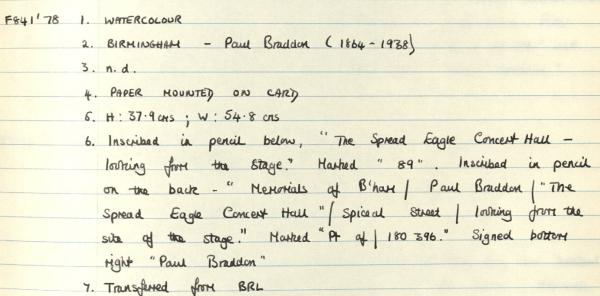 F841'78 1. WATERCOLOUR
2. BIRMINGHAM - Paul Braddon (1864-1938)
3. n.d.
4. PAPER MOUNTED ON CARD
5. H: 37.9 cms ; W: 54.8 cms
6. Inscribed in pencil below, "The Spread Eagle Concert Hall -
looking from the stage." Marked "89". Inscribed in pencil
on the back - "Memorials of B'ham / Paul Braddon / "The
Spread Eagle Concert Hall" / Spiceal Street / looking from the
site of the stage." Marked "Pt of / 180 396." Signed bottom
right "Paul Braddon"
7. Transferred from BRL